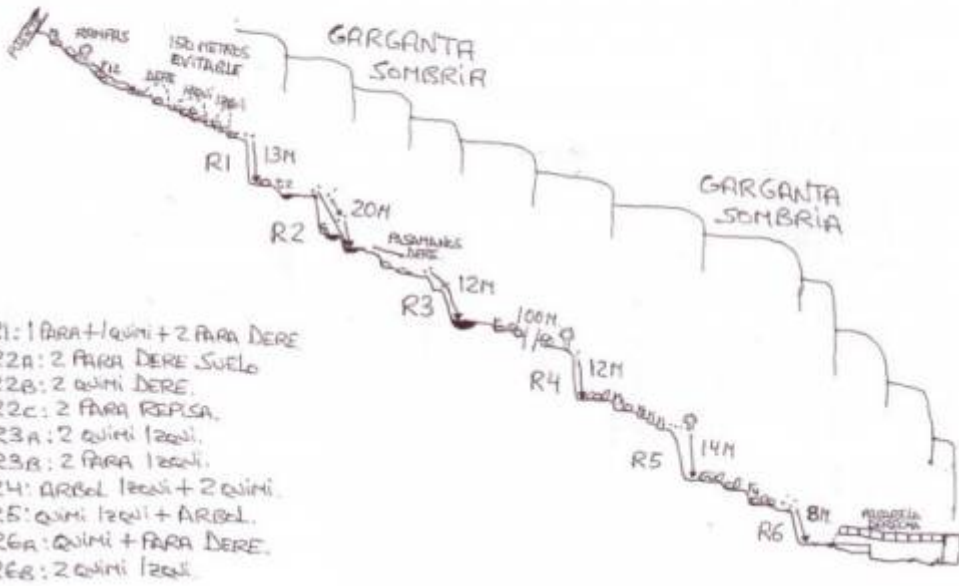 RAMPAS
R12
150 METROS
EVITABLE
DERE
IZQUI IZQUI
GARGANTA
SOMBRIA
R1
13M
R2
20M
PASAMANOS
DERE
R3
12M
100M
R4
12M
R5
14M
R6
8M
GARGANTA
SOMBRIA
R1: 1 PARA + 1 QUIMI + 2 PARA DERE
R2A: 2 PARA DERE SUELO
R2B: 2 QUIMI DERE.
R2C: 2 PARA REPISA.
R3A: 2 QUIMI IZQUI.
R3B: 2 PARA IZQUI.
R4: ARBOL IZQUI + 2 QUIMI.
R5: QUIMI IZQUI + ARBOL.
R6A: QUIMI + PARA DERE.
R6B: 2 QUIMI IZQUI.